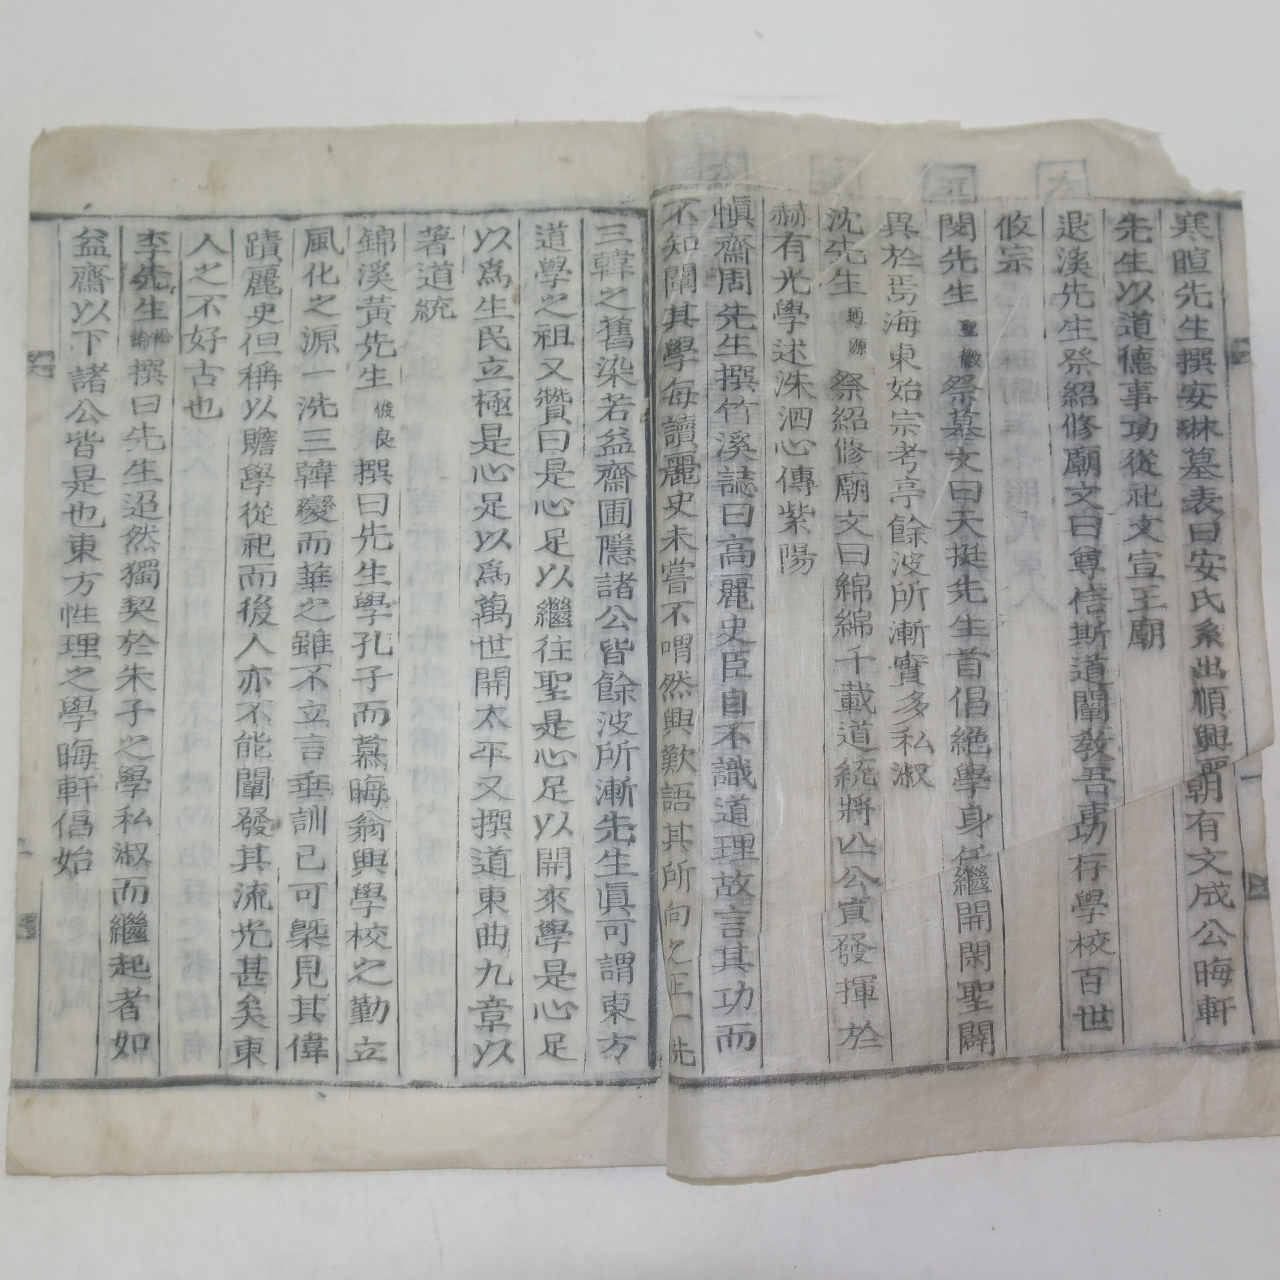 寒暄先生撰安琳墓表曰安氏系出順興麗朝有文成公晦軒
先生以道德事功從祀文宣王廟
退溪先生祭紹修廟文曰尊信斯道闡敎吾東功存學校百世
攸宗
閔先生聖徽祭墓文曰天挺先生首倡絶學身任繼開閑聖闢
異於焉海東始宗考亭餘波所漸實多私淑
沈先生逎源祭紹修廟文曰綿綿千載道統將亾公實發揮於
赫有光學述洙泗心傳紫陽
愼齋周先生撰竹溪誌曰高麗史臣自不識道理故言其功而
不知闡其學每讀麗史未嘗不喟然興歎語其所向之正一洗
三韓之舊染若益齋圃隱諸公皆餘波所漸先生眞可謂東方
道學之祖又贊曰是心足以繼往聖是心足以開來學是心足
以爲生民立極是心足以爲萬世開太平又撰道東曲九章以
著道統
錦溪黃先生俊良撰曰先生學孔子而慕晦翁興學校之勤立
風化之源一洗三韓變而華之雖不立言垂訓已可槩見其偉
蹟麗史但稱以贍學從祀而後人亦不能闡發其流光甚矣東
人之不好古也
李先生撰曰先生迢然獨契於朱子之學私淑而繼起者如
益齋以下諸公皆是也東方性理之學晦軒倡始